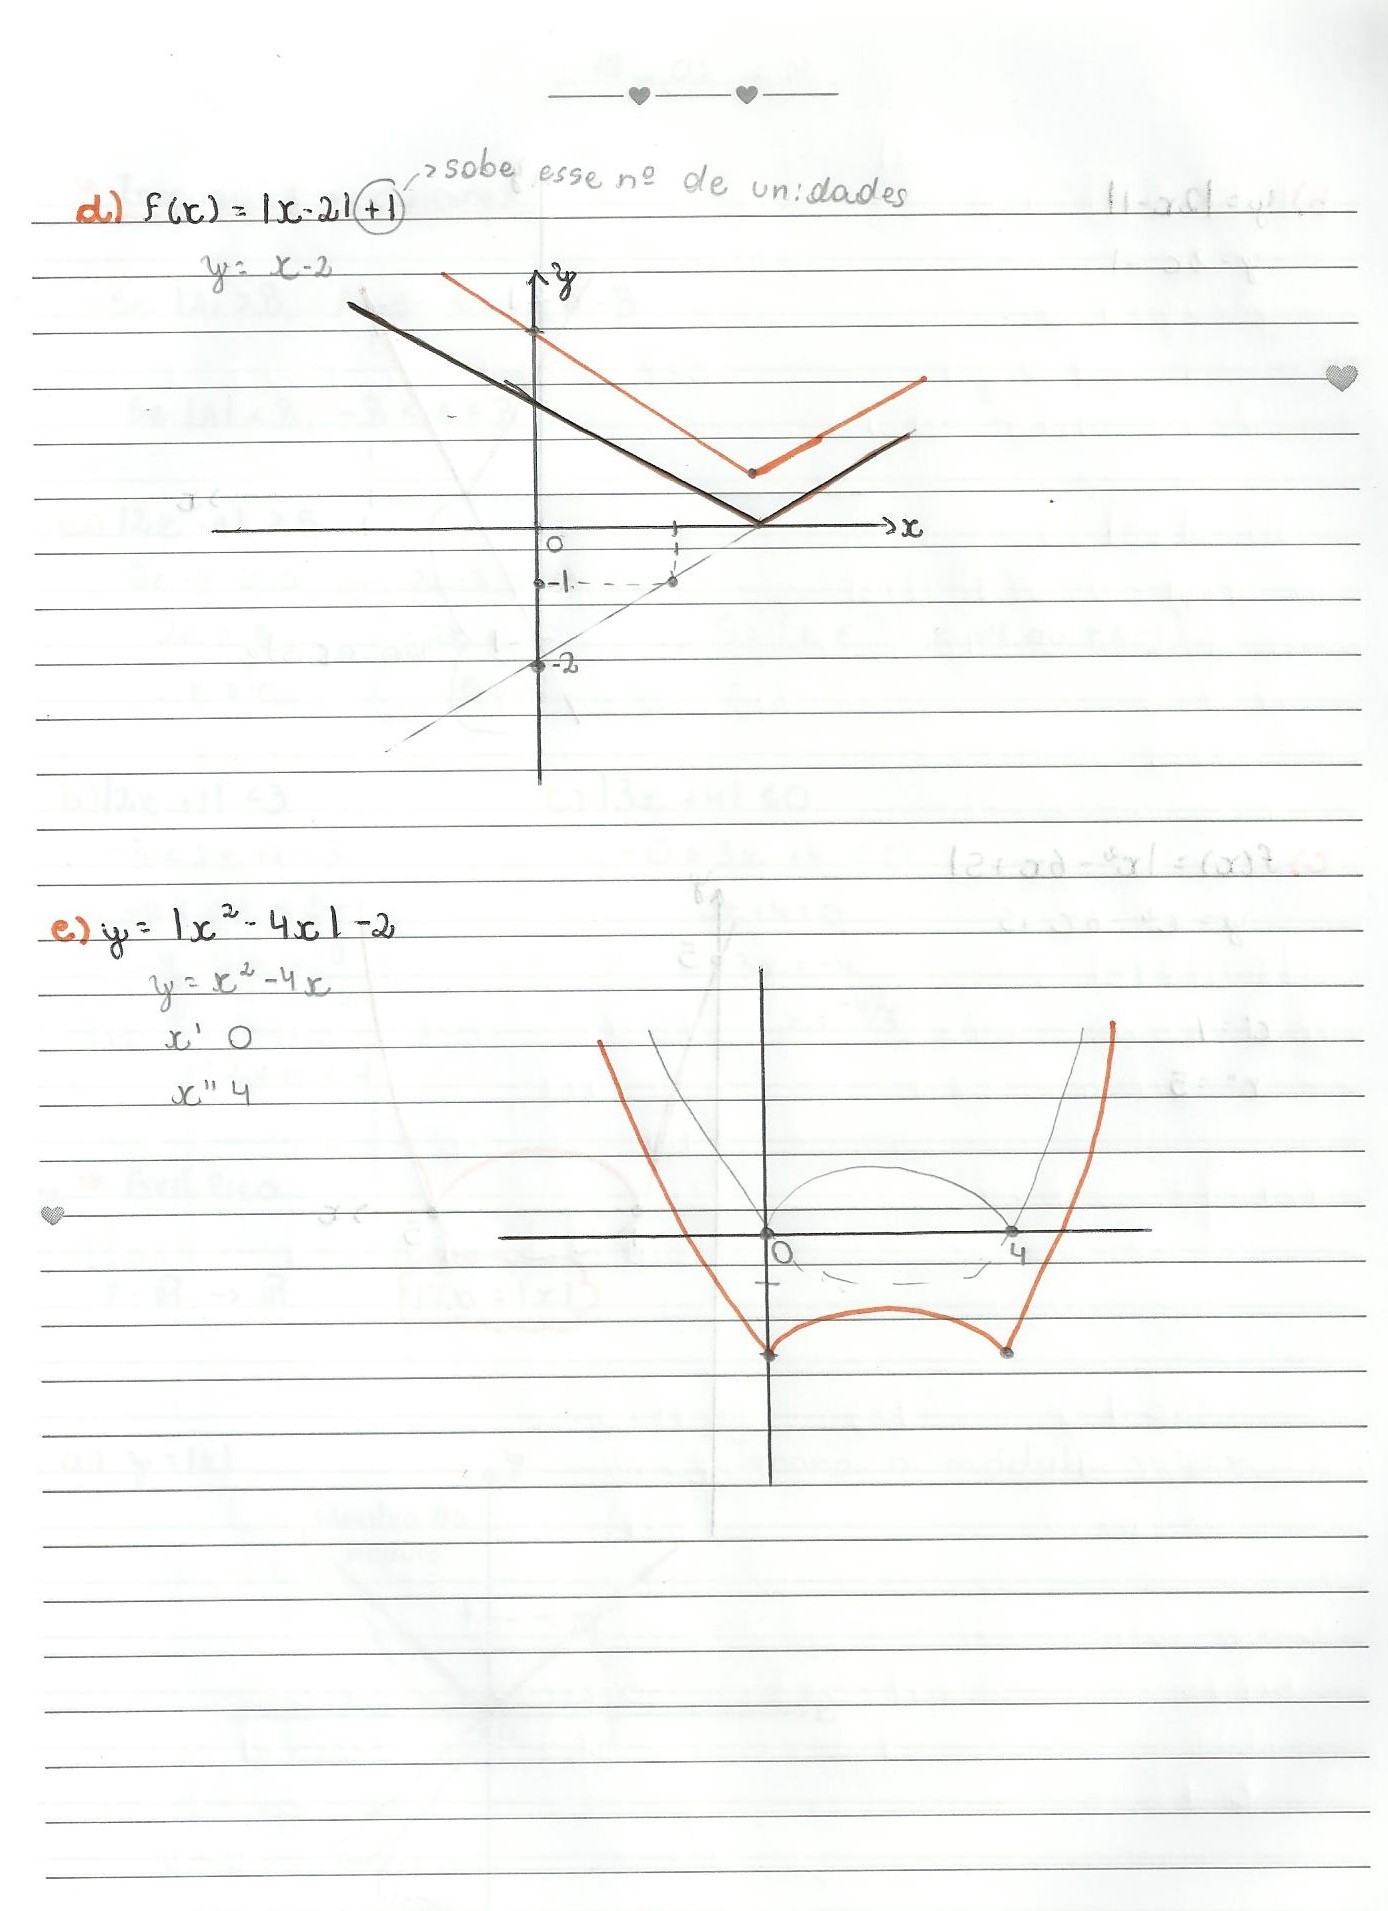 d) f(x) = |x-2| +1 → sobe esse nº de unidades
y = x-2
y
x
0
-1
-2
e) y = |x² - 4x| -2
y = x² -4x
x' 0
x" 4
0
4